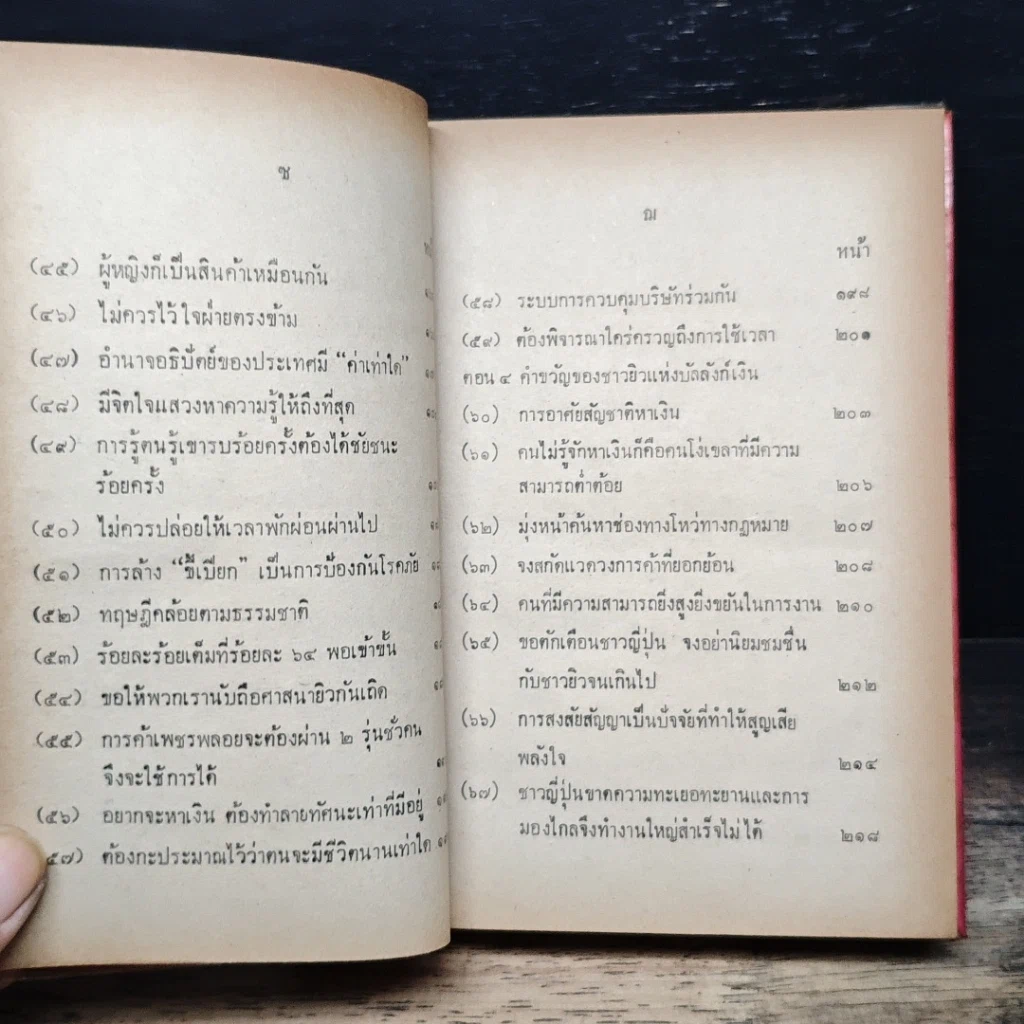 ซ
(๔๕) ผู้หญิงก็เป็นสินค้าเหมือนกัน
(๔๖) ไม่ควรไว้ใจฝ่ายตรงข้าม
(๔๗) อำนาจอธิปัตย์ของประเทศมี "ค่าเท่าใด"
(๔๘) มีจิตใจแสวงหาความรู้ให้ถึงที่สุด
(๔๙) การรู้ตนรู้เขารบร้อยครั้งต้องได้ชัยชนะ
ร้อยครั้ง
(๕๐) ไม่ควรปล่อยให้เวลาพักผ่อนผ่านไป
(๕๑) การล้าง "ขี้เปียก" เป็นการป้องกันโรคภัย
(๕๒) ทฤษฎีคล้อยตามธรรมชาติ
(๕๓) ร้อยละร้อยเต็มที่ร้อยละ ๖๔ พอเข้าขั้น
(๕๔) ขอให้พวกเรานับถือศาสนายิวกันเถิด
(๕๕) การค้าเพชรพลอยจะต้องผ่าน ๒ รุ่นชั่วคน
จึงจะใช้การได้
(๕๖) อยากจะหาเงิน ต้องทำลายทัศนะเท่าที่มีอยู่
๕๗) ต้องกะประมาณไว้ว่าตนจะมีชีวิตนานเท่าใด
ฌ
หน้า
(๕๘) ระบบการควบคุมบริษัทร่วมกัน ๑๙๘
(๕๙) ต้องพิจารณาใคร่ครวญถึงการใช้เวลา ๒๐๑
ตอน ๔ คำขวัญของชาวยิวแห่งบัลลังก์เงิน
(๖๐) การอาศัยสัญชาติหาเงิน ๒๐๓
(๖๑) คนไม่รู้จักหาเงินก็คือคนโง่เขลาที่มีความ
สามารถต่ำต้อย ๒๐๖
(๖๒) มุ่งหน้าค้นหาช่องทางโหว่ทางกฎหมาย ๒๐๗
(๖๓) จงสกัดแวดวงการค้าที่ยอกย้อน ๒๐๘
(๖๔) คนที่มีความสามารถยิ่งสูงยิ่งขยันในการงาน ๒๑๐
(๖๕) ขอตักเตือนชาวญี่ปุ่น จงอย่านิยมชมชื่น
กับชาวยิวจนเกินไป ๒๑๒
(๖๖) การสงสัยสัญญาเป็นปัจจัยที่ทำให้สูญเสีย
พลังใจ ๒๑๔
(๖๗) ชาวญี่ปุ่นขาดความทะเยอทะยานและการ
มองไกลจึงทำงานใหญ่สำเร็จไม่ได้ ๒๑๘